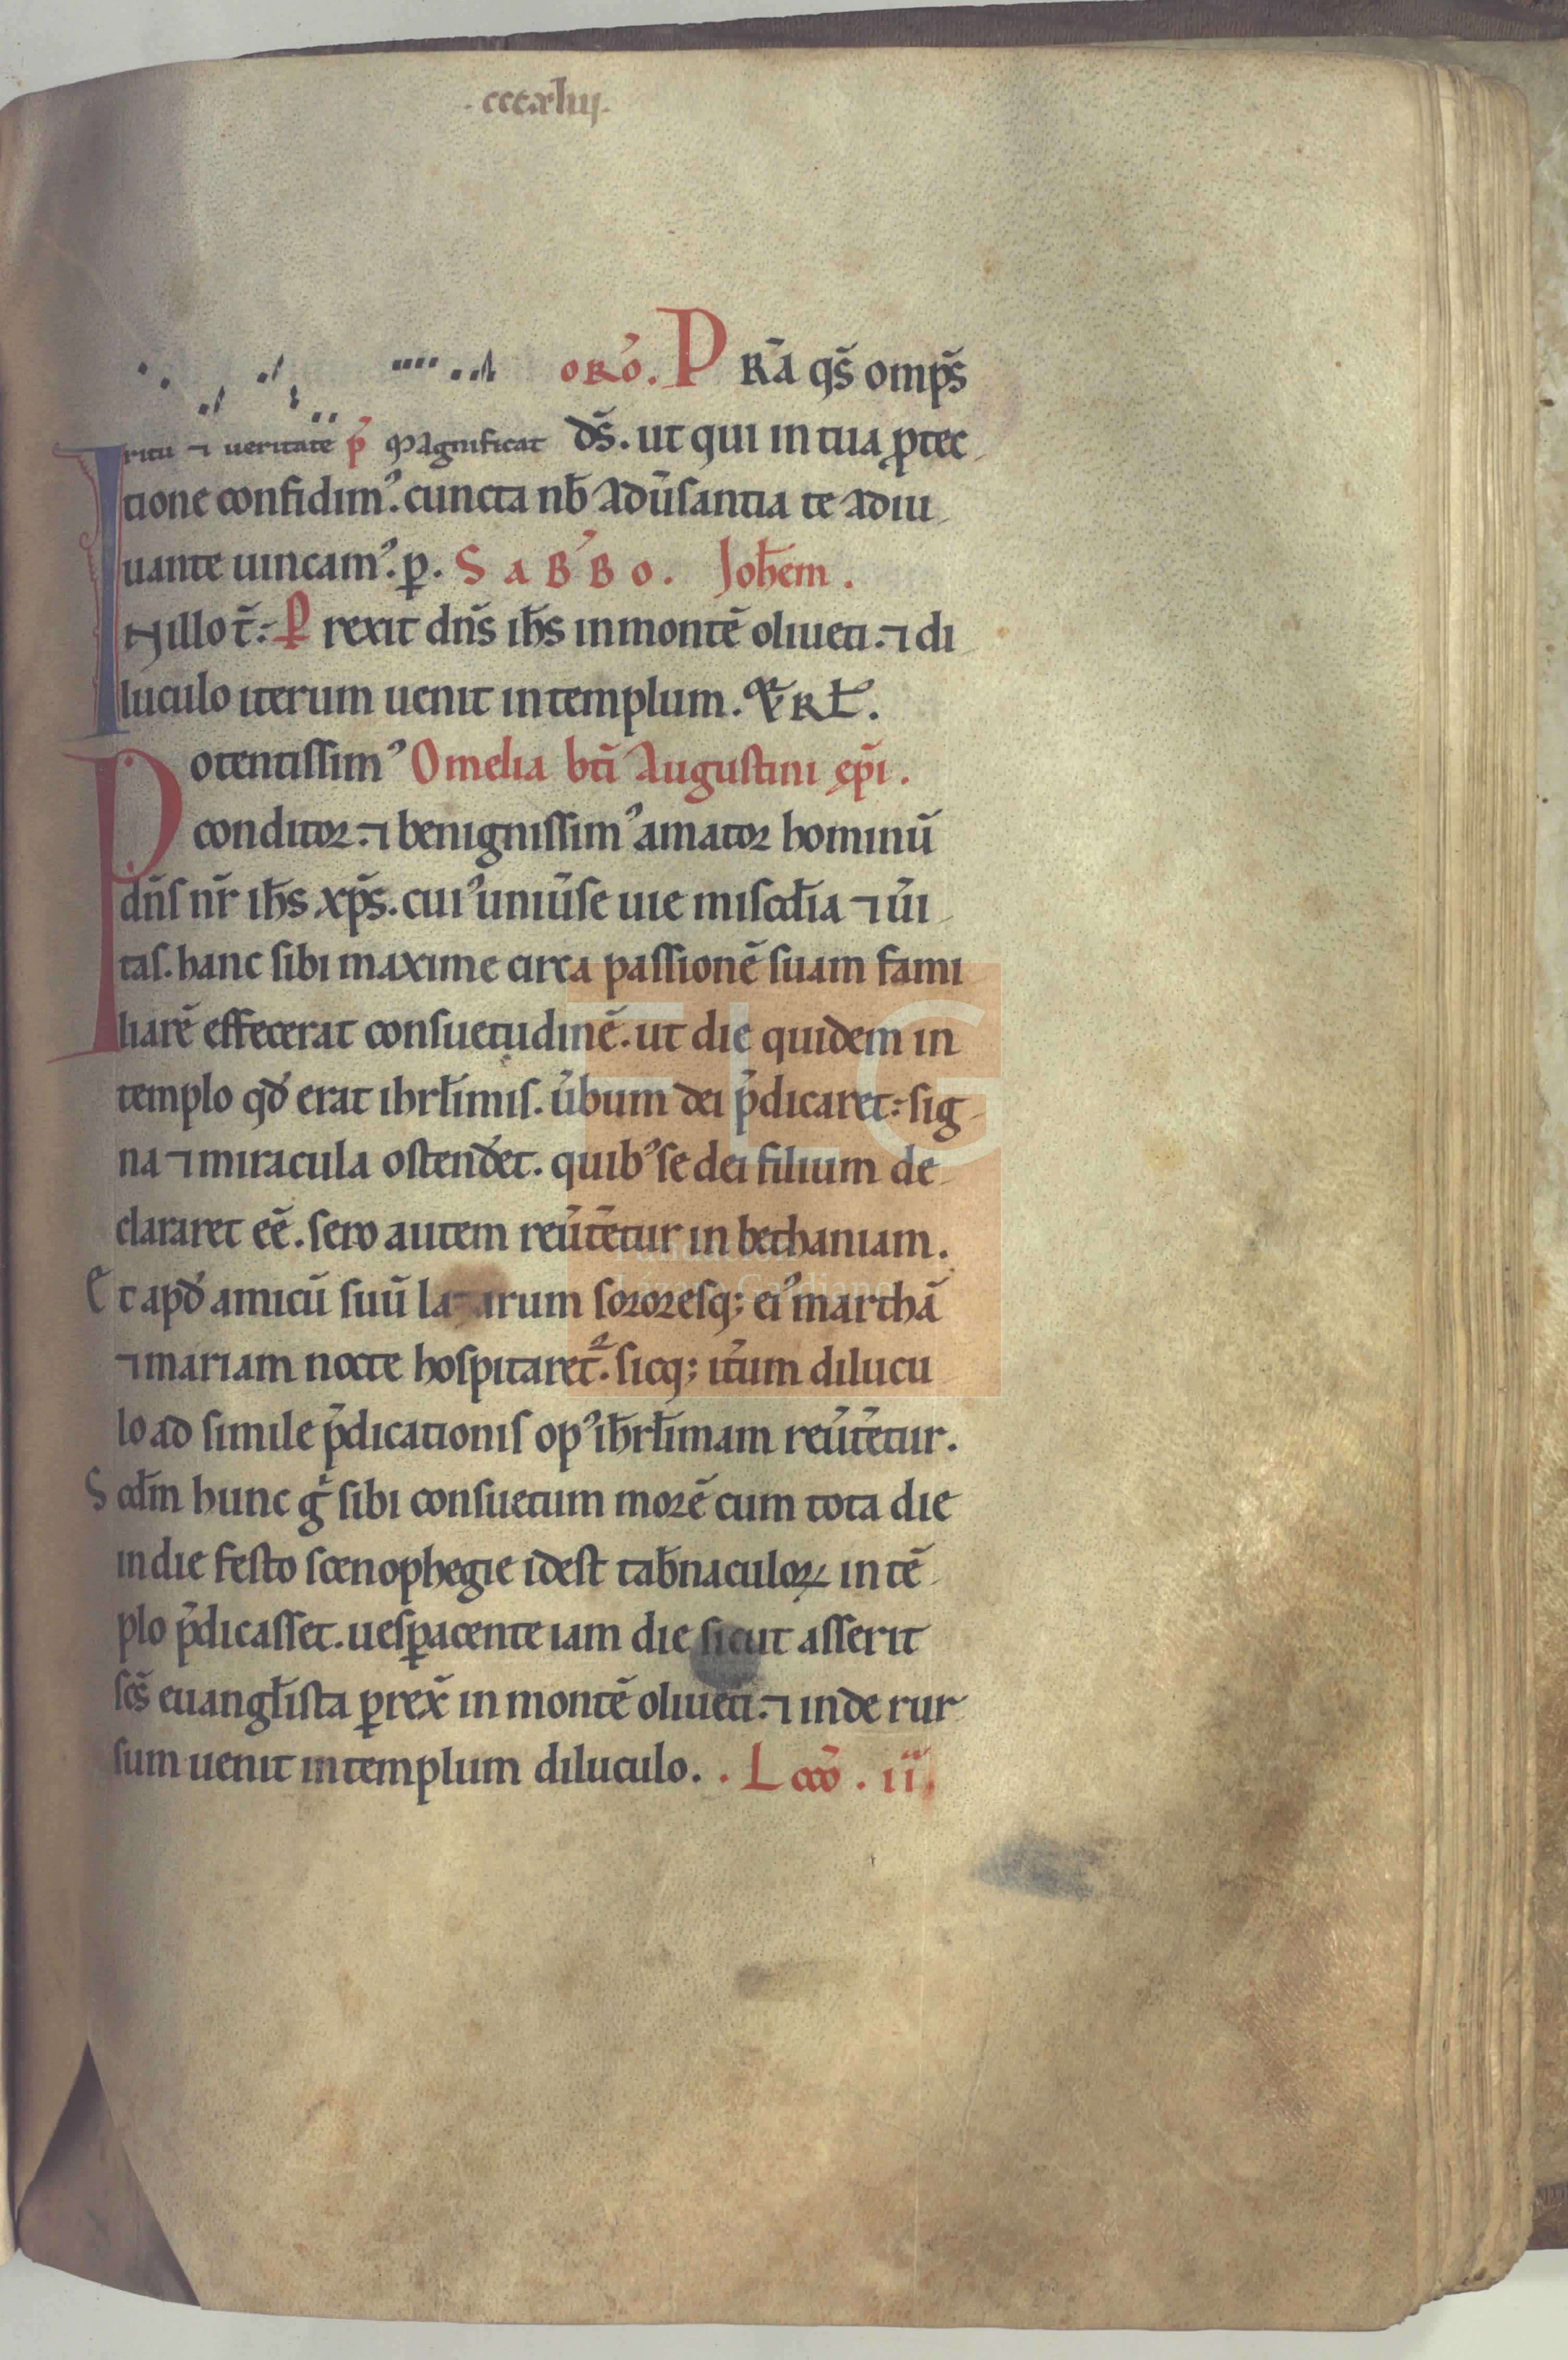 .cccxliij.
oro͛. P Ra̅ qs̅ omps̅
ritu ⁊ ueritate p̅ Magnificat ds̅. ut qui in tua ꝓtec
tione confidim᾽. cuncta nb̅ adu̅santia te adiu
uante uincam᾽. p. SaB᾽Bo. Joh̅em.
I N illo t̅. P rexit dn̅s ih̅s in monte̅ oliueti. ⁊ di
luculo iterum uenit in templum. & Rł.
P otentissim᾽ Omelia bt̅i Augustini ep̅i.
conditor. ⁊ benignissim᾽ amator hominu̅
dn̅s nr̅ ih̅s xp̅s. cui᾽ uniu̅se uie misćdia ⁊ u̅i
tas. hanc sibi maxime circa passione̅ suam fami
liare̅ effecerat consuetudine̅. ut die quidem in
templo qd̅ erat ihrłimis. u̅bum dei p̅dicaret. sig
na ⁊ miracula ostend̅et. quib᾽ se dei filium de
clararet ee̅. sero autem reu̅te̅tur in bethaniam.
Et apd̅ amicu̅ suu̅ la arum sororesq; ei᾽ martha̅
⁊ mariam nocte hospitaret᷑. sicq; it̅um dilucu
lo ad simile p̅dicationis op᾽ ih̅rłimam reu̅te̅tur.
Scd̅m hunc g̅ sibi consuetum more̅ cum tota die
in die festo scenophegie idest tab̅naculoꝝ in te̅
plo p̅dicasset. uesꝑacente iam die sicut asserit
sc̅s euangłista ꝑrex̅ in monte̅ oliueti. ⁊ inde rur
sum uenit in templum diluculo. . Lcc̅o. ii.
FLG
Fundación
Lázaro Galdiano